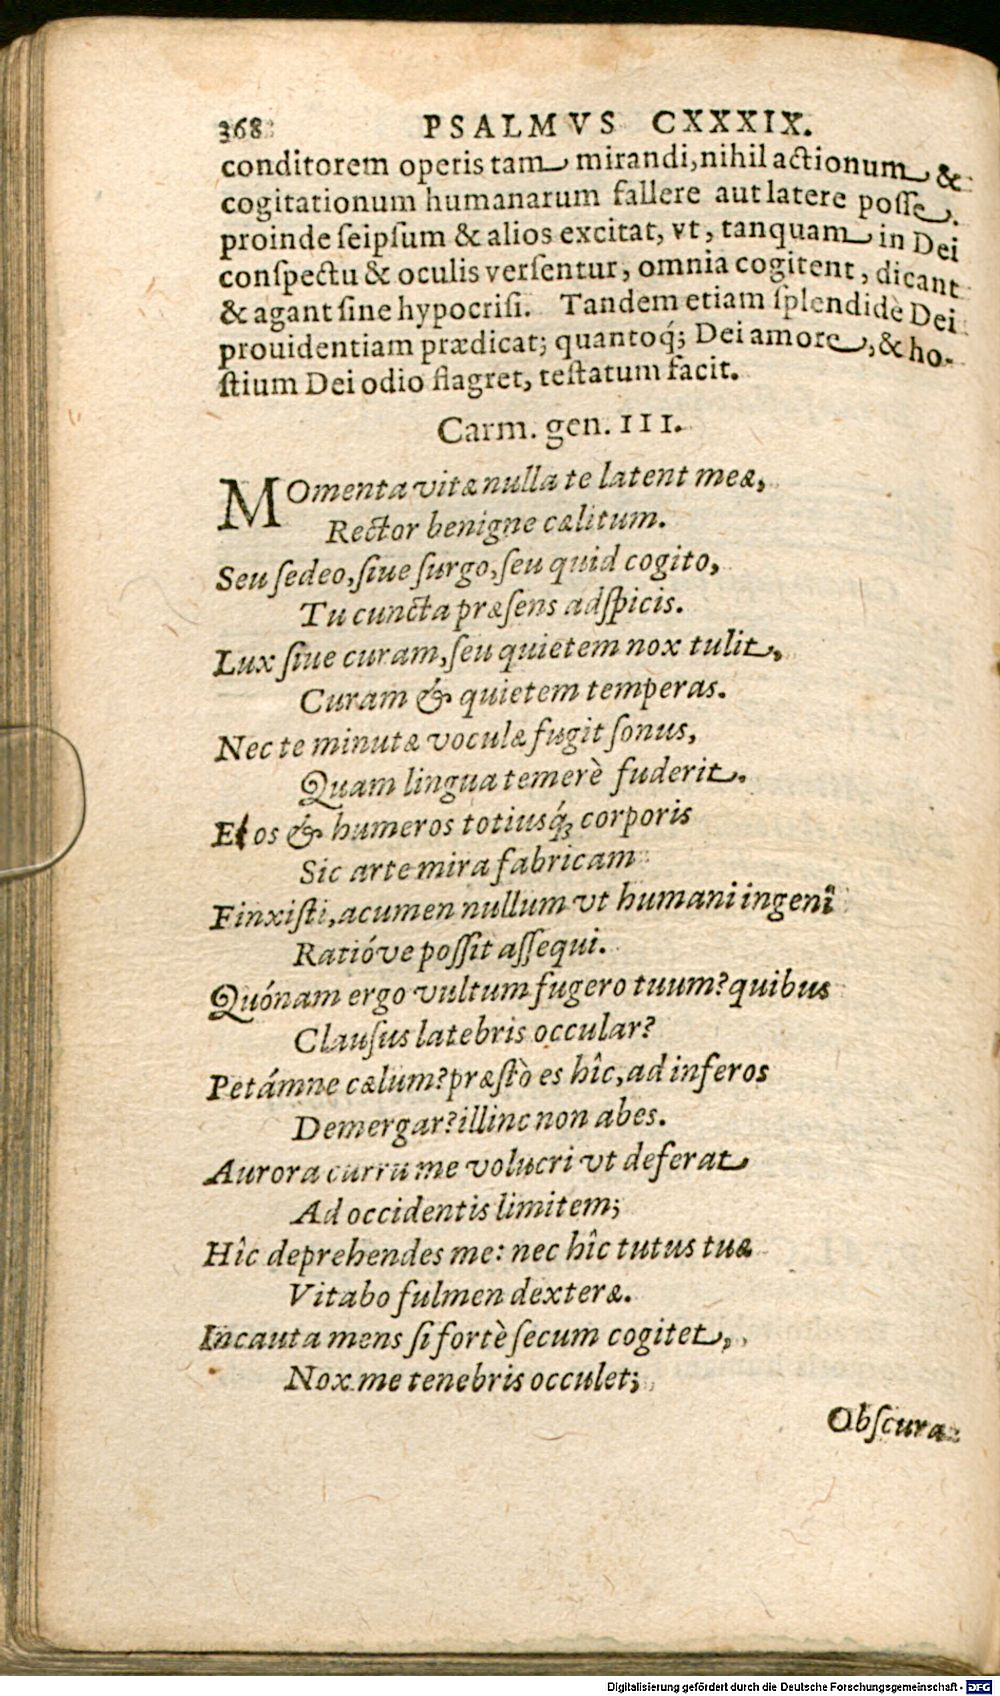 368 PSALMVS CXXXIX.
conditorem operis tam mirandi, nihil actionum &
cogitationum humanarum fallere aut latere posse.
proinde seipsum & alios excitat, vt, tanquam in Dei
conspectu & oculis versentur, omnia cogitent, dicant
& agant sine hypocrisi. Tandem etiam splendidè Dei
prouidentiam prædicat; quantoq́; Dei amore, & ho-
stium Dei odio flagret, testatum facit.
Carm. gen. III.
MOmenta vitæ nulla te latent meæ,
Rector benigne cælitum.
Seu sedeo, siue surgo, seu quid cogito,
Tu cuncta præsens adspicis.
Lux siue curam, seu quietem nox tulit,
Curam & quietem temperas.
Nec te minutæ voculæ fugit sonus,
Quam lingua temerè fuderit.
Et os & humeros totiusq́; corporis
Sic arte mira fabricam
Finxisti, acumen nullum vt humani ingenî
Ratióve possit assequi.
Quónam ergo vultum fugero tuum? quibus
Clausus latebris occular?
Petámne cælum? præstò es hîc, ad inferos
Demergar? illinc non abes.
Aurora curru me volucri vt deferat
Ad occidentis limitem;
Hîc deprehendes me: nec hîc tutus tuæ
Vitabo fulmen dexteræ.
Incauta mens si fortè secum cogitet,
Nox me tenebris occulet;
Obscura
Digitalisierung gefördert durch die Deutsche Forschungsgemeinschaft - DFG